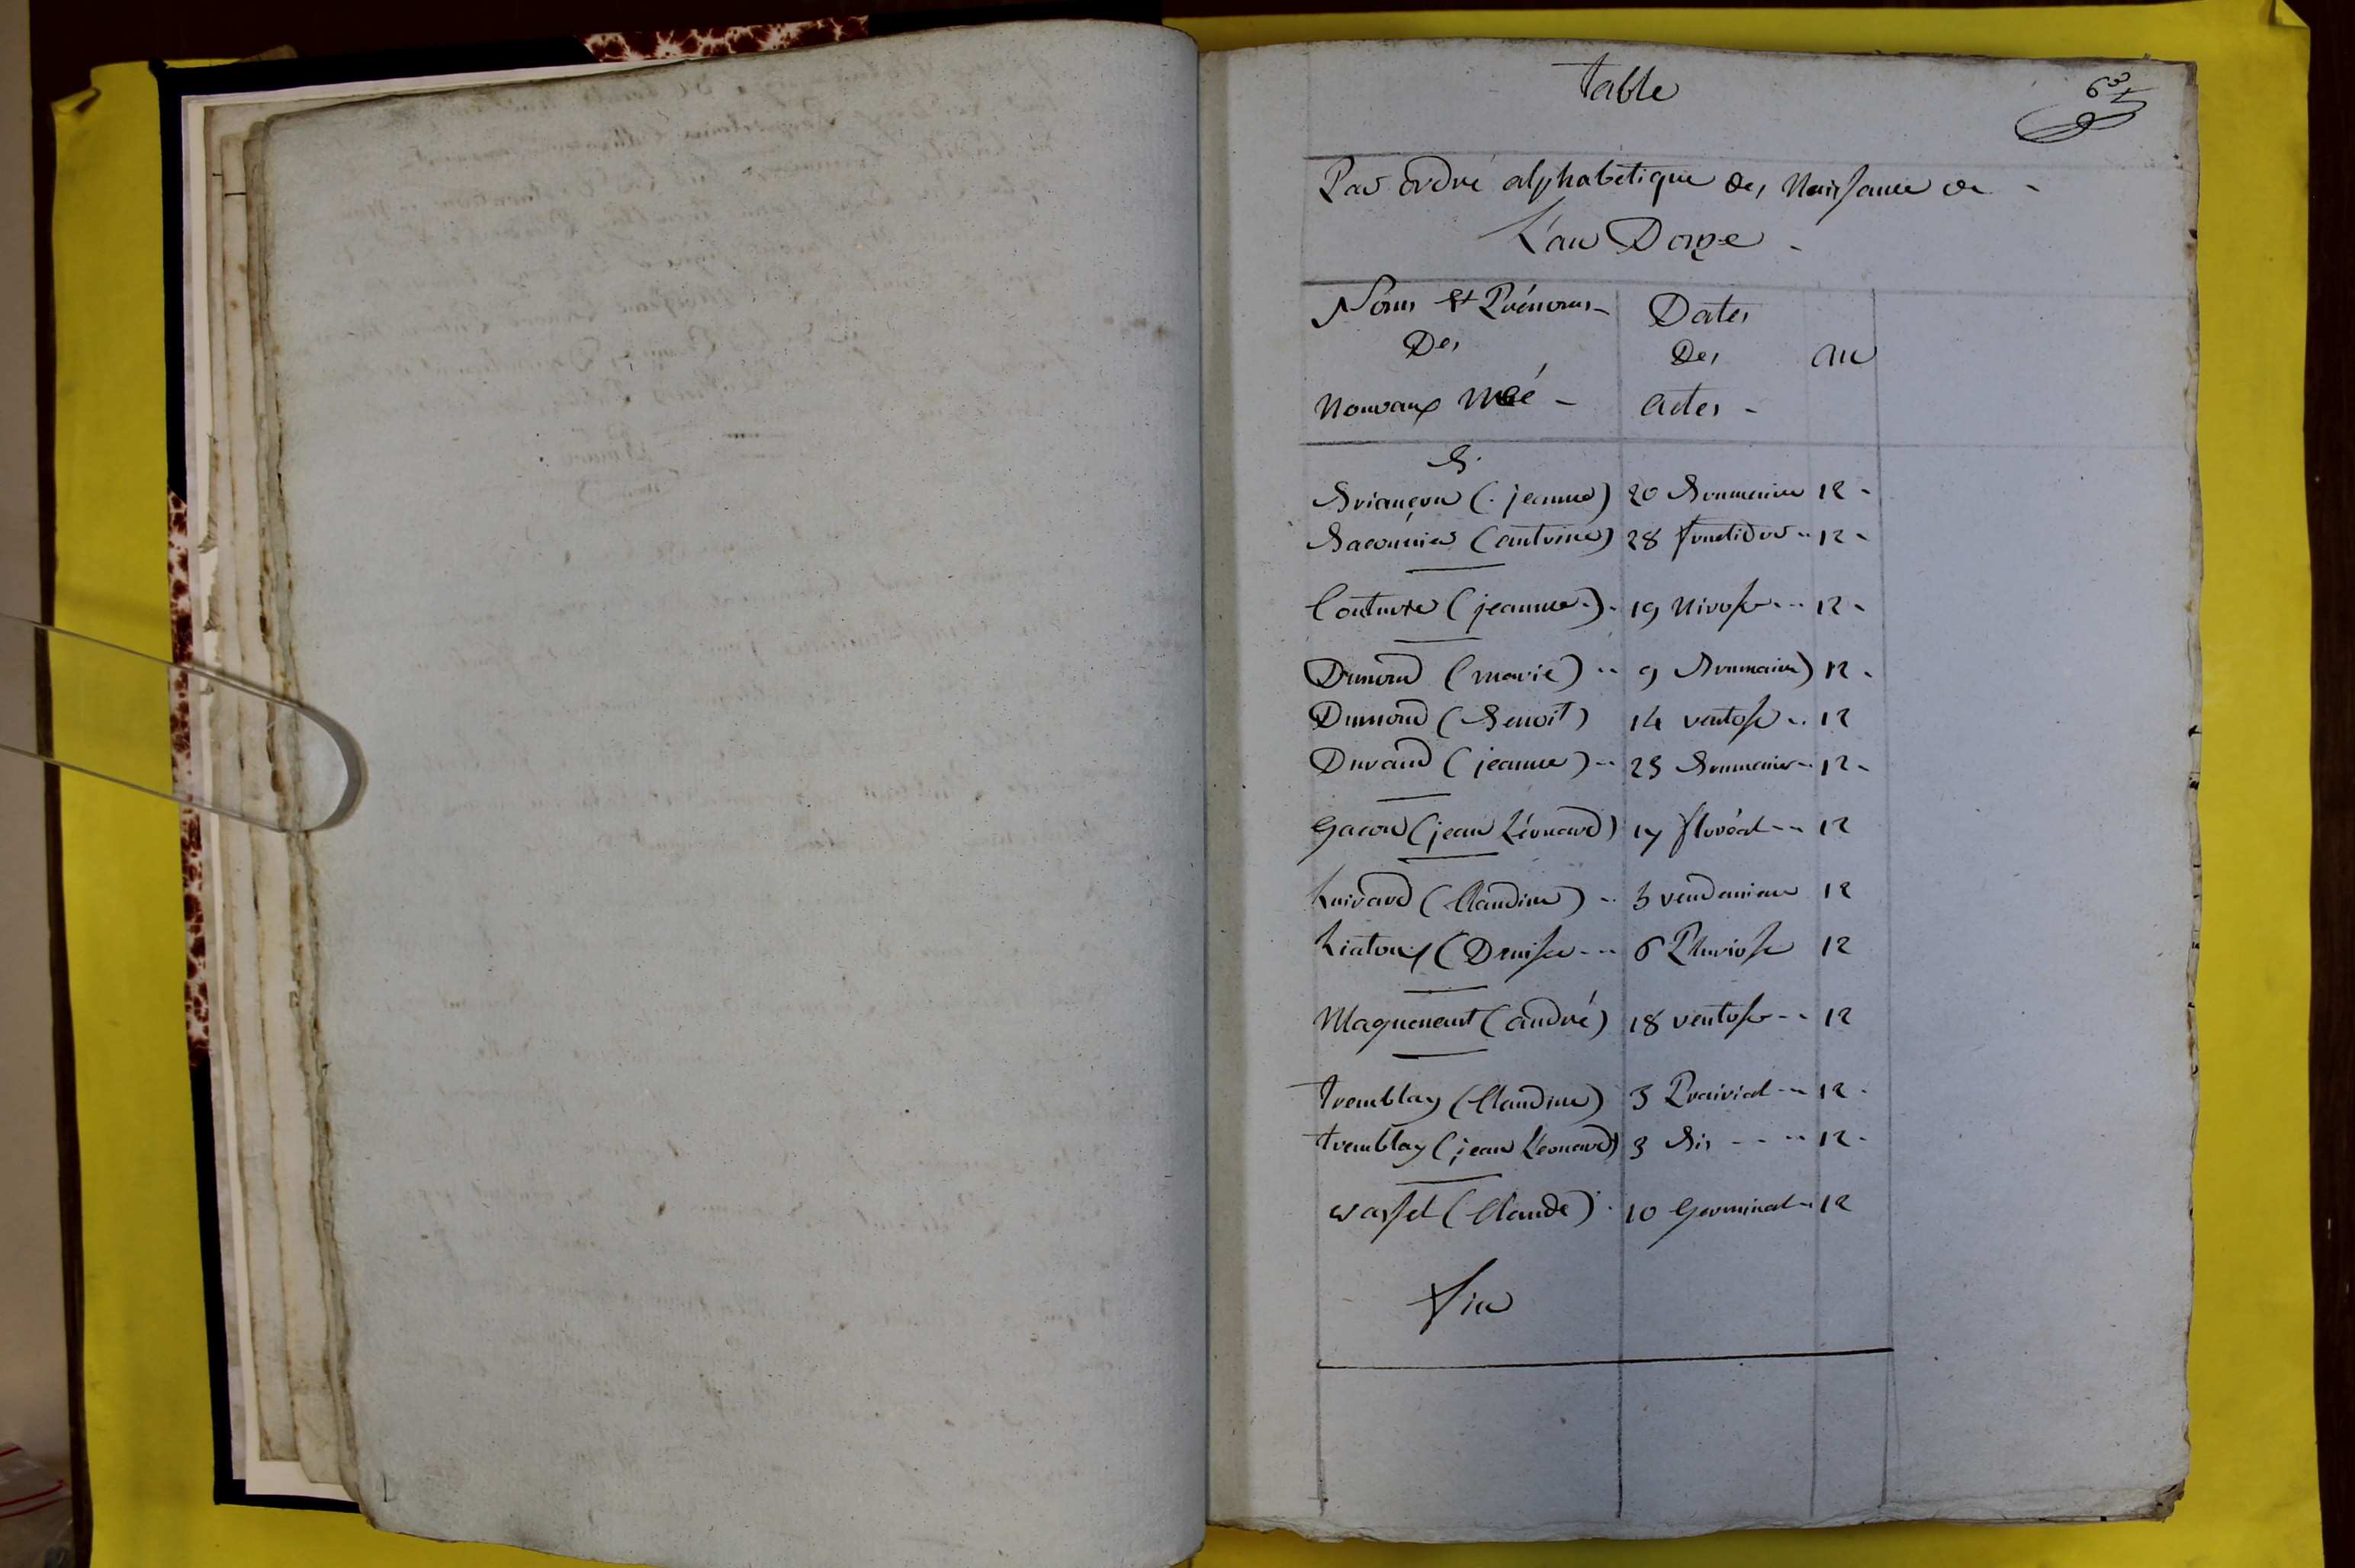 Table
63
Par ordre alphabétique des Naissance de -
L'an Douze -
Noms Et Prénoms - Dates
Des Des an
Nouvaux née - actes -
B.
Briançon (jeanne) 20 Brumaire 12 -
Baconnier (antoine) 28 fructidor .. 12 -
Couturre (jeanne) . 19 Nivose ... 12 -
Dumond (marie) .. 9 Brumaire 12 -
Dumond (Benoit) 14 ventose .. 12
Durand (jeanne) .. 25 Brumaire .. 12 -
Gacon (jean Léonard) 17 floréal ... 12
Luirard (Claudine) .. 5 vendemiaire 12
Liatoux (Denise ... 6 Pluviose 12
Maguenaut (andré) 18 ventose .. 12
Tremblay (Claudine) 3 Prairial ... 12 -
Tremblay (jean Léonard) 3 Bis - - .. 12 -
Wassel (Claude) . 10 Germinal .. 12
Fin